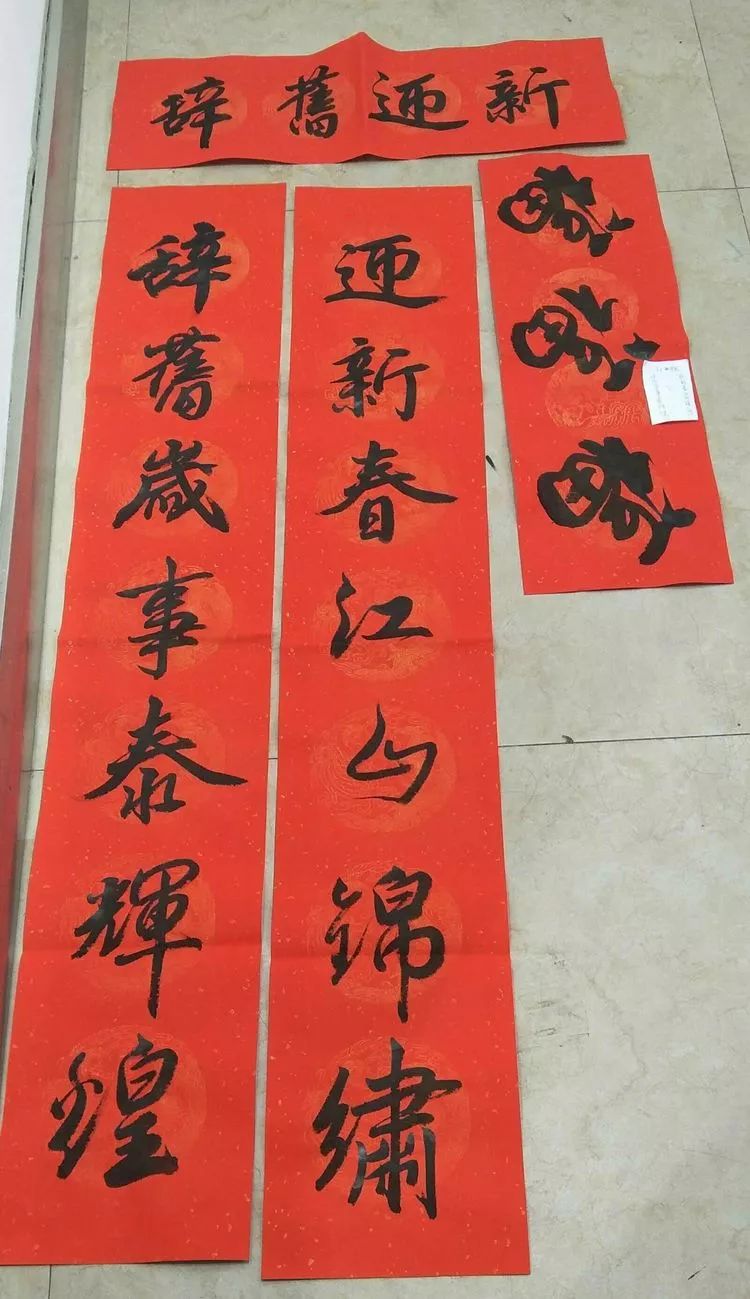 辞舊迎新
辞舊歲事泰輝煌
迎新春江山錦繡